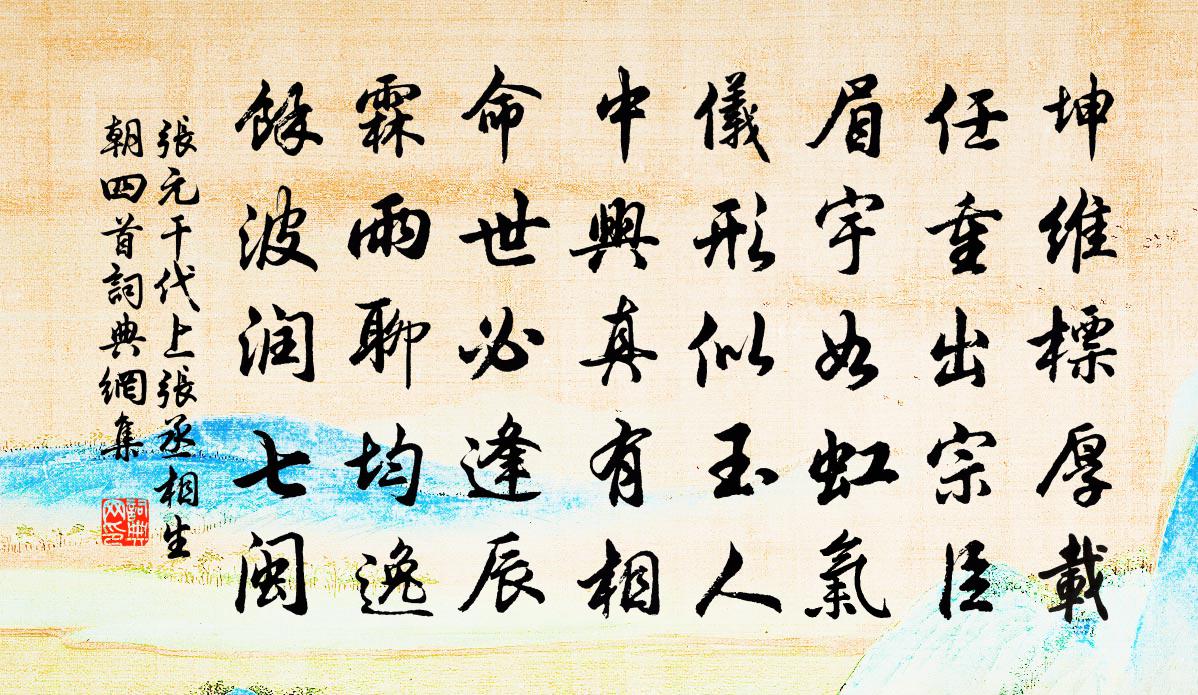 坤維標厚載
任重出宗臣
眉宇如虹氣
儀形似玉人
中興真有相
命世必逢辰
霖雨聊均逸
餘波润七閩
張元干代上張丞相生
朝四首詞典網集
詞典网印